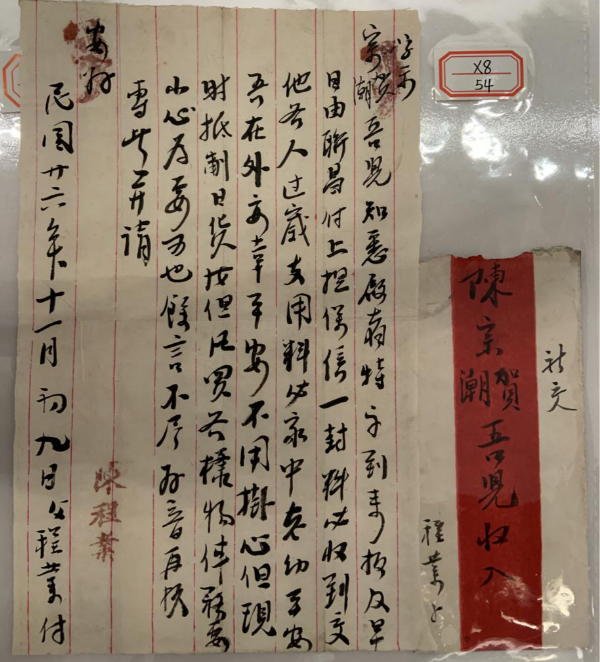 字示
宗賀潮吾兒知悉啟者特字到來 及早
日由聯昌付上担保信一封料必收到交
他各人过歲支用料必家中老幼平安
吾在外安幸平安不用掛心但現
时抵制日货 但凡買各樣物件務要
小心為要可也餘言不尽好音再候
專此并請
安好
民國廿六年十一月初九日父程業付
陳程業
X8
54
祈交
陳宗賀潮吾兒收入
程業